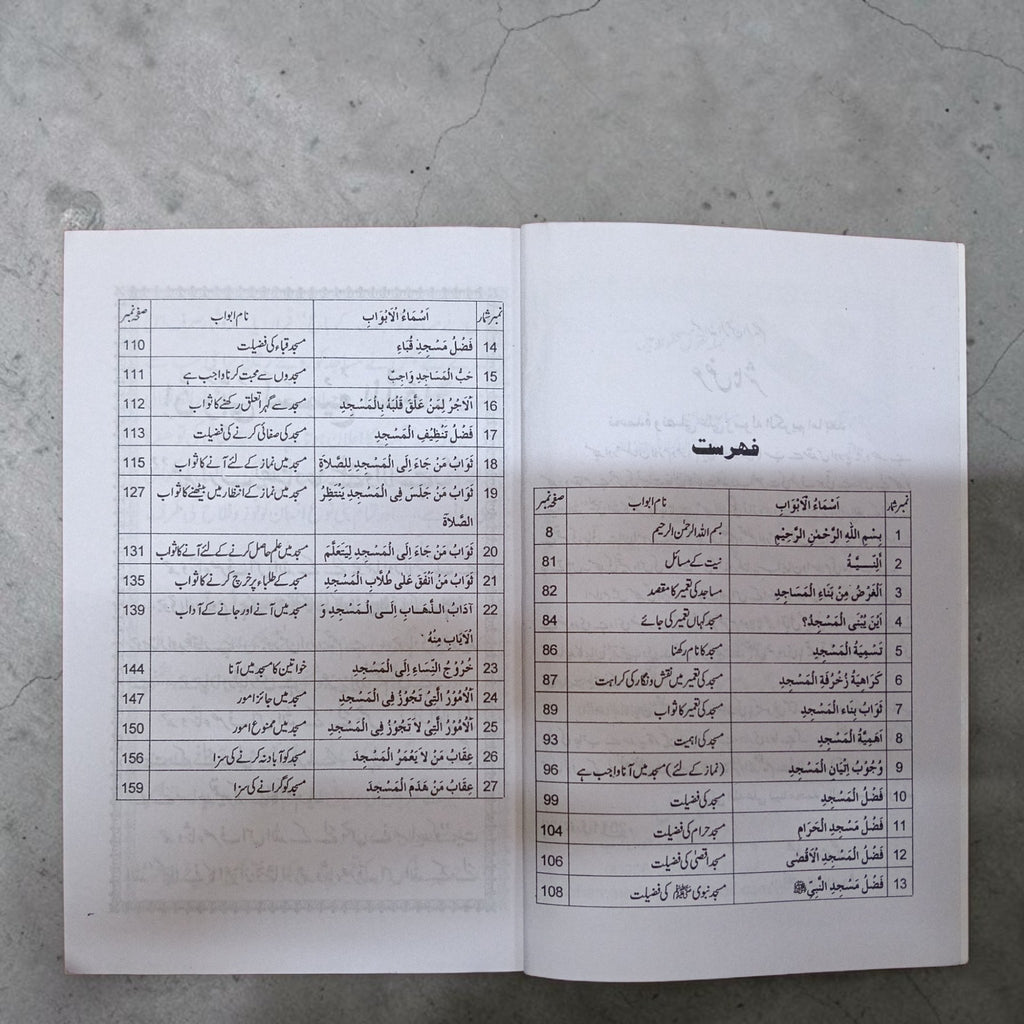 فهرست
نمبر شمار اَسْمَاءُ الْاَبْوَابِ نام ابواب صفحہ نمبر
1 بِسْمِ اللّٰهِ الرَّحْمٰنِ الرَّحِيْمِ بسم اللہ الرحمٰن الرحیم 8
2 اَلنِّـيَّـةُ نیت کے مسائل 81
3 اَلْغَرْضُ مِنْ بِنَاءِ الْمَسَاجِدِ مساجد کی تعمیر کا مقصد 82
4 اَيْنَ يُبْنَى الْمَسْجِدُ؟ مسجد کہاں تعمیر کی جائے 84
5 تَسْمِيَةُ الْمَسْجِدِ مسجد کا نام رکھنا 86
6 كَرَاهِيَةُ زُخْرُفَةِ الْمَسْجِدِ مسجد کی تعمیر میں نقش و نگار کی کراہت 87
7 ثَوَابُ بِنَاءِ الْمَسْجِدِ مسجد کی تعمیر کا ثواب 89
8 اَهَمِيَّةُ الْمَسْجِدِ مسجد کی اہمیت 93
9 وُجُوْبُ اِتْيَانِ الْمَسْجِدِ (نماز کے لئے) مسجد میں آنا واجب ہے 96
10 فَضْلُ الْمَسْجِدِ مسجد کی فضیلت 99
11 فَضْلُ مَسْجِدِ الْحَرَامِ مسجد حرام کی فضیلت 104
12 فَضْلُ الْمَسْجِدِ الْاَقْصٰى مسجد اقصیٰ کی فضیلت 106
13 فَضْلُ مَسْجِدِ النَّبِيِّ ﷺ مسجد نبوی ﷺ کی فضیلت 108
نمبر شمار اَسْمَاءُ الْاَبْوَابِ نام ابواب صفحہ نمبر
14 فَضْلُ مَسْجِدِ قُبَاءِ مسجد قباء کی فضیلت 110
15 حُبُّ الْمَسَاجِدِ وَاجِبٌ مسجدوں سے محبت کرنا واجب ہے 111
16 اَلْاَجْرُ لِمَنْ عَلَّقَ قَلْبَهٗ بِالْمَسْجِدِ مسجد سے گہرا تعلق رکھنے کا ثواب 112
17 فَضْلُ تَنْظِيْفِ الْمَسْجِدِ مسجد کی صفائی کرنے کی فضیلت 113
18 ثَوَابُ مَنْ جَاءَ اِلَى الْمَسْجِدِ لِلصَّلاَةِ مسجد میں نماز کے لئے آنے کا ثواب 115
19 ثَوَابُ مَنْ جَلَسَ فِى الْمَسْجِدِ يَنْتَظِرُ مسجد میں نماز کے انتظار میں بیٹھنے کا ثواب 127
الصَّلاَةَ
20 ثَوَابُ مَنْ جَاءَ اِلَى الْمَسْجِدِ لِيَتَعَلَّمَ مسجد میں علم حاصل کرنے کے لئے آنے کا ثواب 131
21 ثَوَابُ مَنْ اَنْفَقَ عَلٰى طُلَّابِ الْمَسْجِدِ مسجد کے طلباء پر خرچ کرنے کا ثواب 135
22 آدَابُ الـذَّهَـابِ اِلَـى الْـمَسْجِدِ وَ مسجد میں آنے اور جانے کے آداب 139
الْاِيَابِ مِنْهُ
23 خُرُوْجُ النِّسَاءِ اِلَى الْمَسْجِدِ خواتین کا مسجد میں آنا 144
24 اَلْاُمُوْرُ الَّتِىْ تَجُوْزُ فِى الْمَسْجِدِ مسجد میں جائز امور 147
25 اَلْاُمُوْرُ الَّتِىْ لاَ تَجُوْزُ فِى الْمَسْجِدِ مسجد میں ممنوع امور 150
26 عِقَابُ مَنْ لاَ يَعْمُرُ الْمَسْجِدَ مسجد کو آباد نہ کرنے کی سزا 156
27 عِقَابُ مَنْ هَدَمَ الْمَسْجِدَ مسجد کو گرانے کی سزا 159